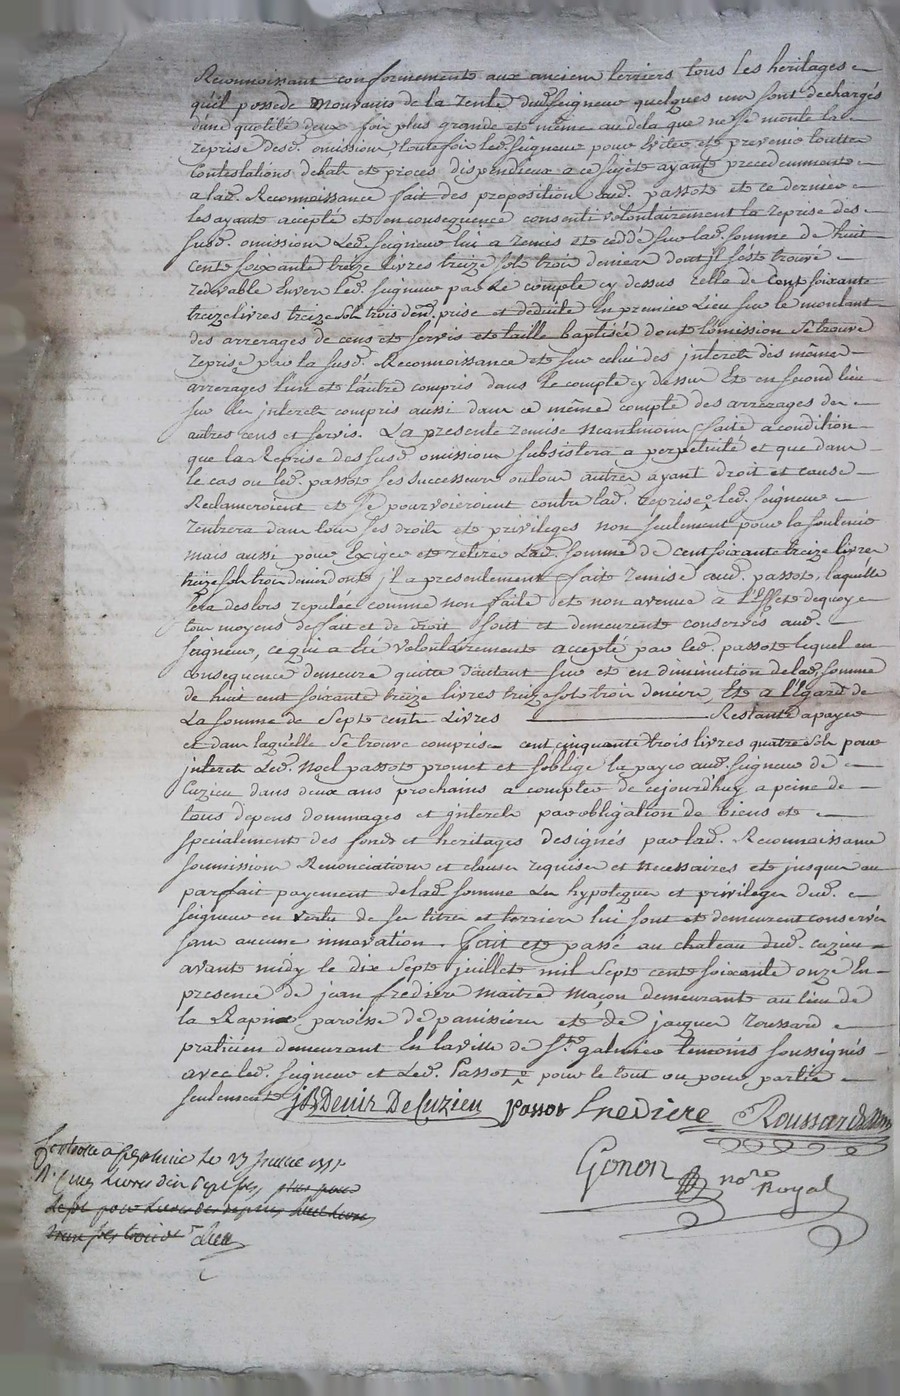 Reconnoissant conformement aux anciens terriers tous les heritages
qu'il possede Mouvants de la rente dud. seigneur quelques uns sont dechargés
d'une quotité deux fois plus grande et même au dela que ne se monte la
reprise desd. omissions, toutefois led. seigneur pour eviter et prevenir toutte
Contestations debats et proces dispendieux a ce sujet ayant precedemment
a lad. Reconnoissance fait des propositions aud. passot et ce dernier
les ayant accepté et en consequence consenti volontairement la reprise des
susd. omissions Led. seigneur lui a remis et ceddé sur lad. somme de huit
cents soixante treize livres treize sols trois deniers dont il s'est trouvé
redevable Envers led. seigneur par Le compte cy dessus celle de Cent soixante
treize livres treize sols trois den. prise et deduite En premier Lieu sur le montant
des arrerages de cens et servis et taille baptisée dont l'omission se trouve
reprise par la susd. Reconnoissance et sur celui des interets des mêmes
arrerages l'un et l'autre compris dans le compte cy dessus Et en second lieu
sur les interets compris aussi dans ce même compte des arrerages des
autres cens et servis. La presente remise Neantmoins faite a condition
que la Reprise des susd. omissions subsistera a perpetuité et que dans
le cas ou led. passot ses successeurs ou tous autres ayant droit et cause
Reclameroient et se pourvoieroient contre lad. reprise led. seigneur
rentrera dans tous ses droits et privileges non seulement pour la soutenir
mais aussi pour Exiger et retirer Lad. somme de cent soixante treize livres
treize sols trois deniers dont il a presentement fait remise aud. passot, laquelle
sera des lors reputée comme non faite et non avenue a l'Effet de quoy
tous moyens de fait et de droit sont et demeurent conservés aud.
seigneur, ce qui a été volontairement accepté par led. passot lequel en
consequence demeure quitte d'autant sur et en diminution de lad. somme
de huit cent soixante treize livres treize sols trois deniers, Et a l'egard de
La somme de Sept cents Livres Restante a payer
et dans laquelle se trouve comprise cent cinquante trois livres quatre sols pour
interets Led. Noel passot promet et s'oblige la payer aud. seigneur de
Cuzieu dans deux ans prochains a compter de cejourd'huy a peine de
tous depens dommages et interets par obligation de biens et
specialement des fonds et heritages designés par lad. Reconnoissance
soumissions Renonciations et clauses requises et necessaires et jusques au
parfait payement de lad. somme Les hypoteques et privileges dud.
seigneur en vertu de ses titres et terriers lui sont et demeurent conservés
sans aucune innovation. fait et passé au chateau dud. cuzieu
avant midy le dix sept juillet mil sept cents soixante onze En
presence de jean fredière maitre maçon demeurant au lieu de
la Rapine paroisse de panissieres et de jacques roussard
praticien demeurant En la ville de St. galmier temoins soussignés
avec led. seigneur et Led. Passot pour le tout ou pour partie
seulement
JB Denis De Cuzieu passot fredière Roussard
Gonon no.re Royal
Controllé a St galmier le 27 juillet 1771
R. Cinq livres dix sept sols